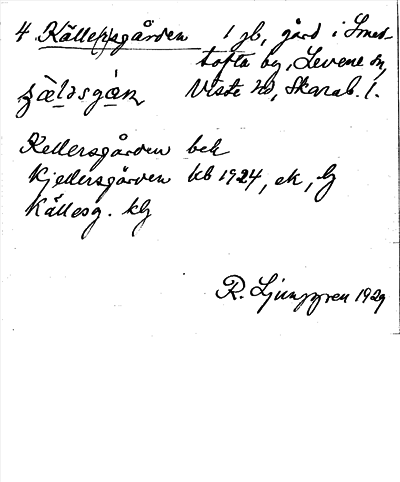 4 Källe(r)sgården 1 gb, gård i Smeds-
tofta by, Levene sn,
Viste hd, Skarab. l.
Kellersgården bek
Kjellersgården kb 1924, ek, lg
Källesg. klg
R. Ljunggren 1929